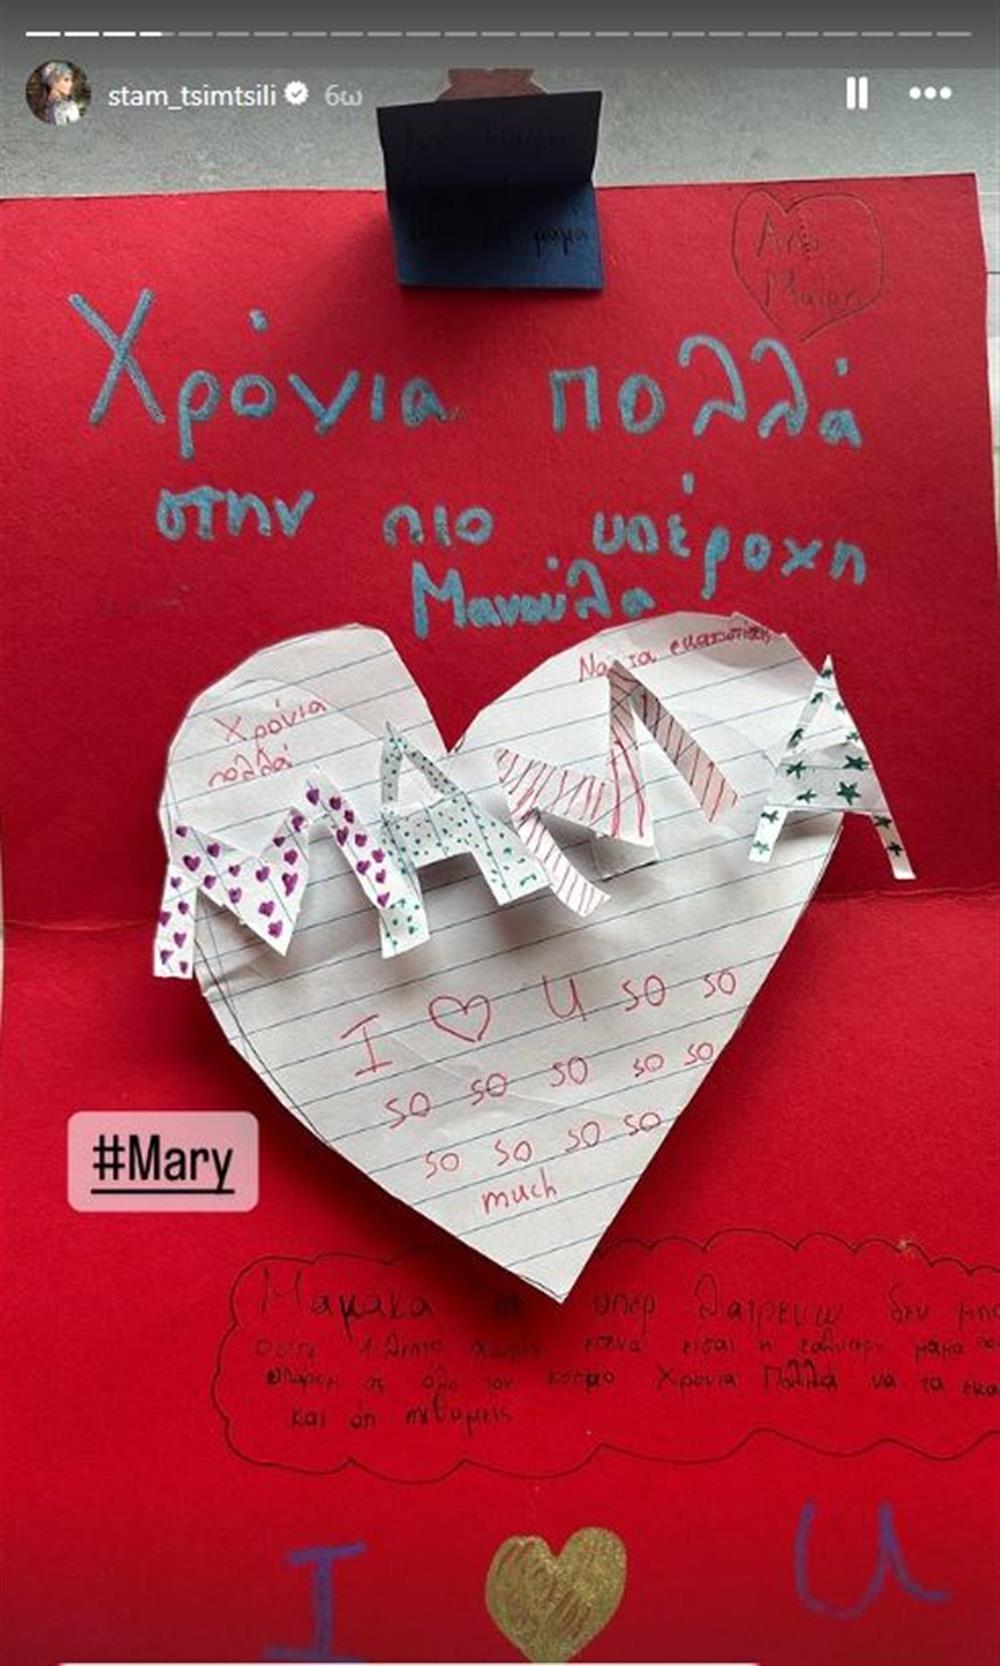 stam_tsimtsili 6ω
μαμά
Από
Μαίρη
Χρόνια πολλά
στην πιο υπέροχη
Μανούλα
Χρόνια
πολλά
Να τα εκατοστίσεις
ΜΑΜΑ
I ♡ U so so
so so so so so
so so so so
much
#Mary
Μαμακα σε υπερ λατρευω δεν
1 λεπτο χωρις εσενα εισαι η καλυτερη μαμα
υπαρχει σε όλο τον κόσμο Χρόνια Πολλά να τα
και ότι πιθυμεις
I ♡ U